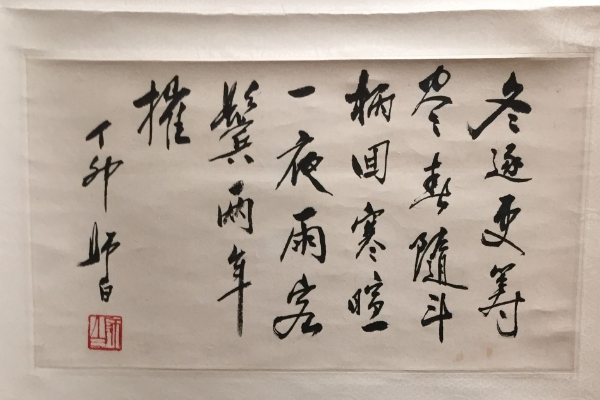 冬逐更筹
尽春隨斗
柄回寒暄
一夜雨客
鬢兩年
摧
丁卯 师白